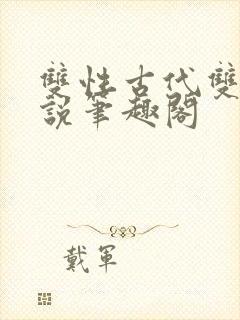 雙性古代雙
說筆趣閣
戴軍